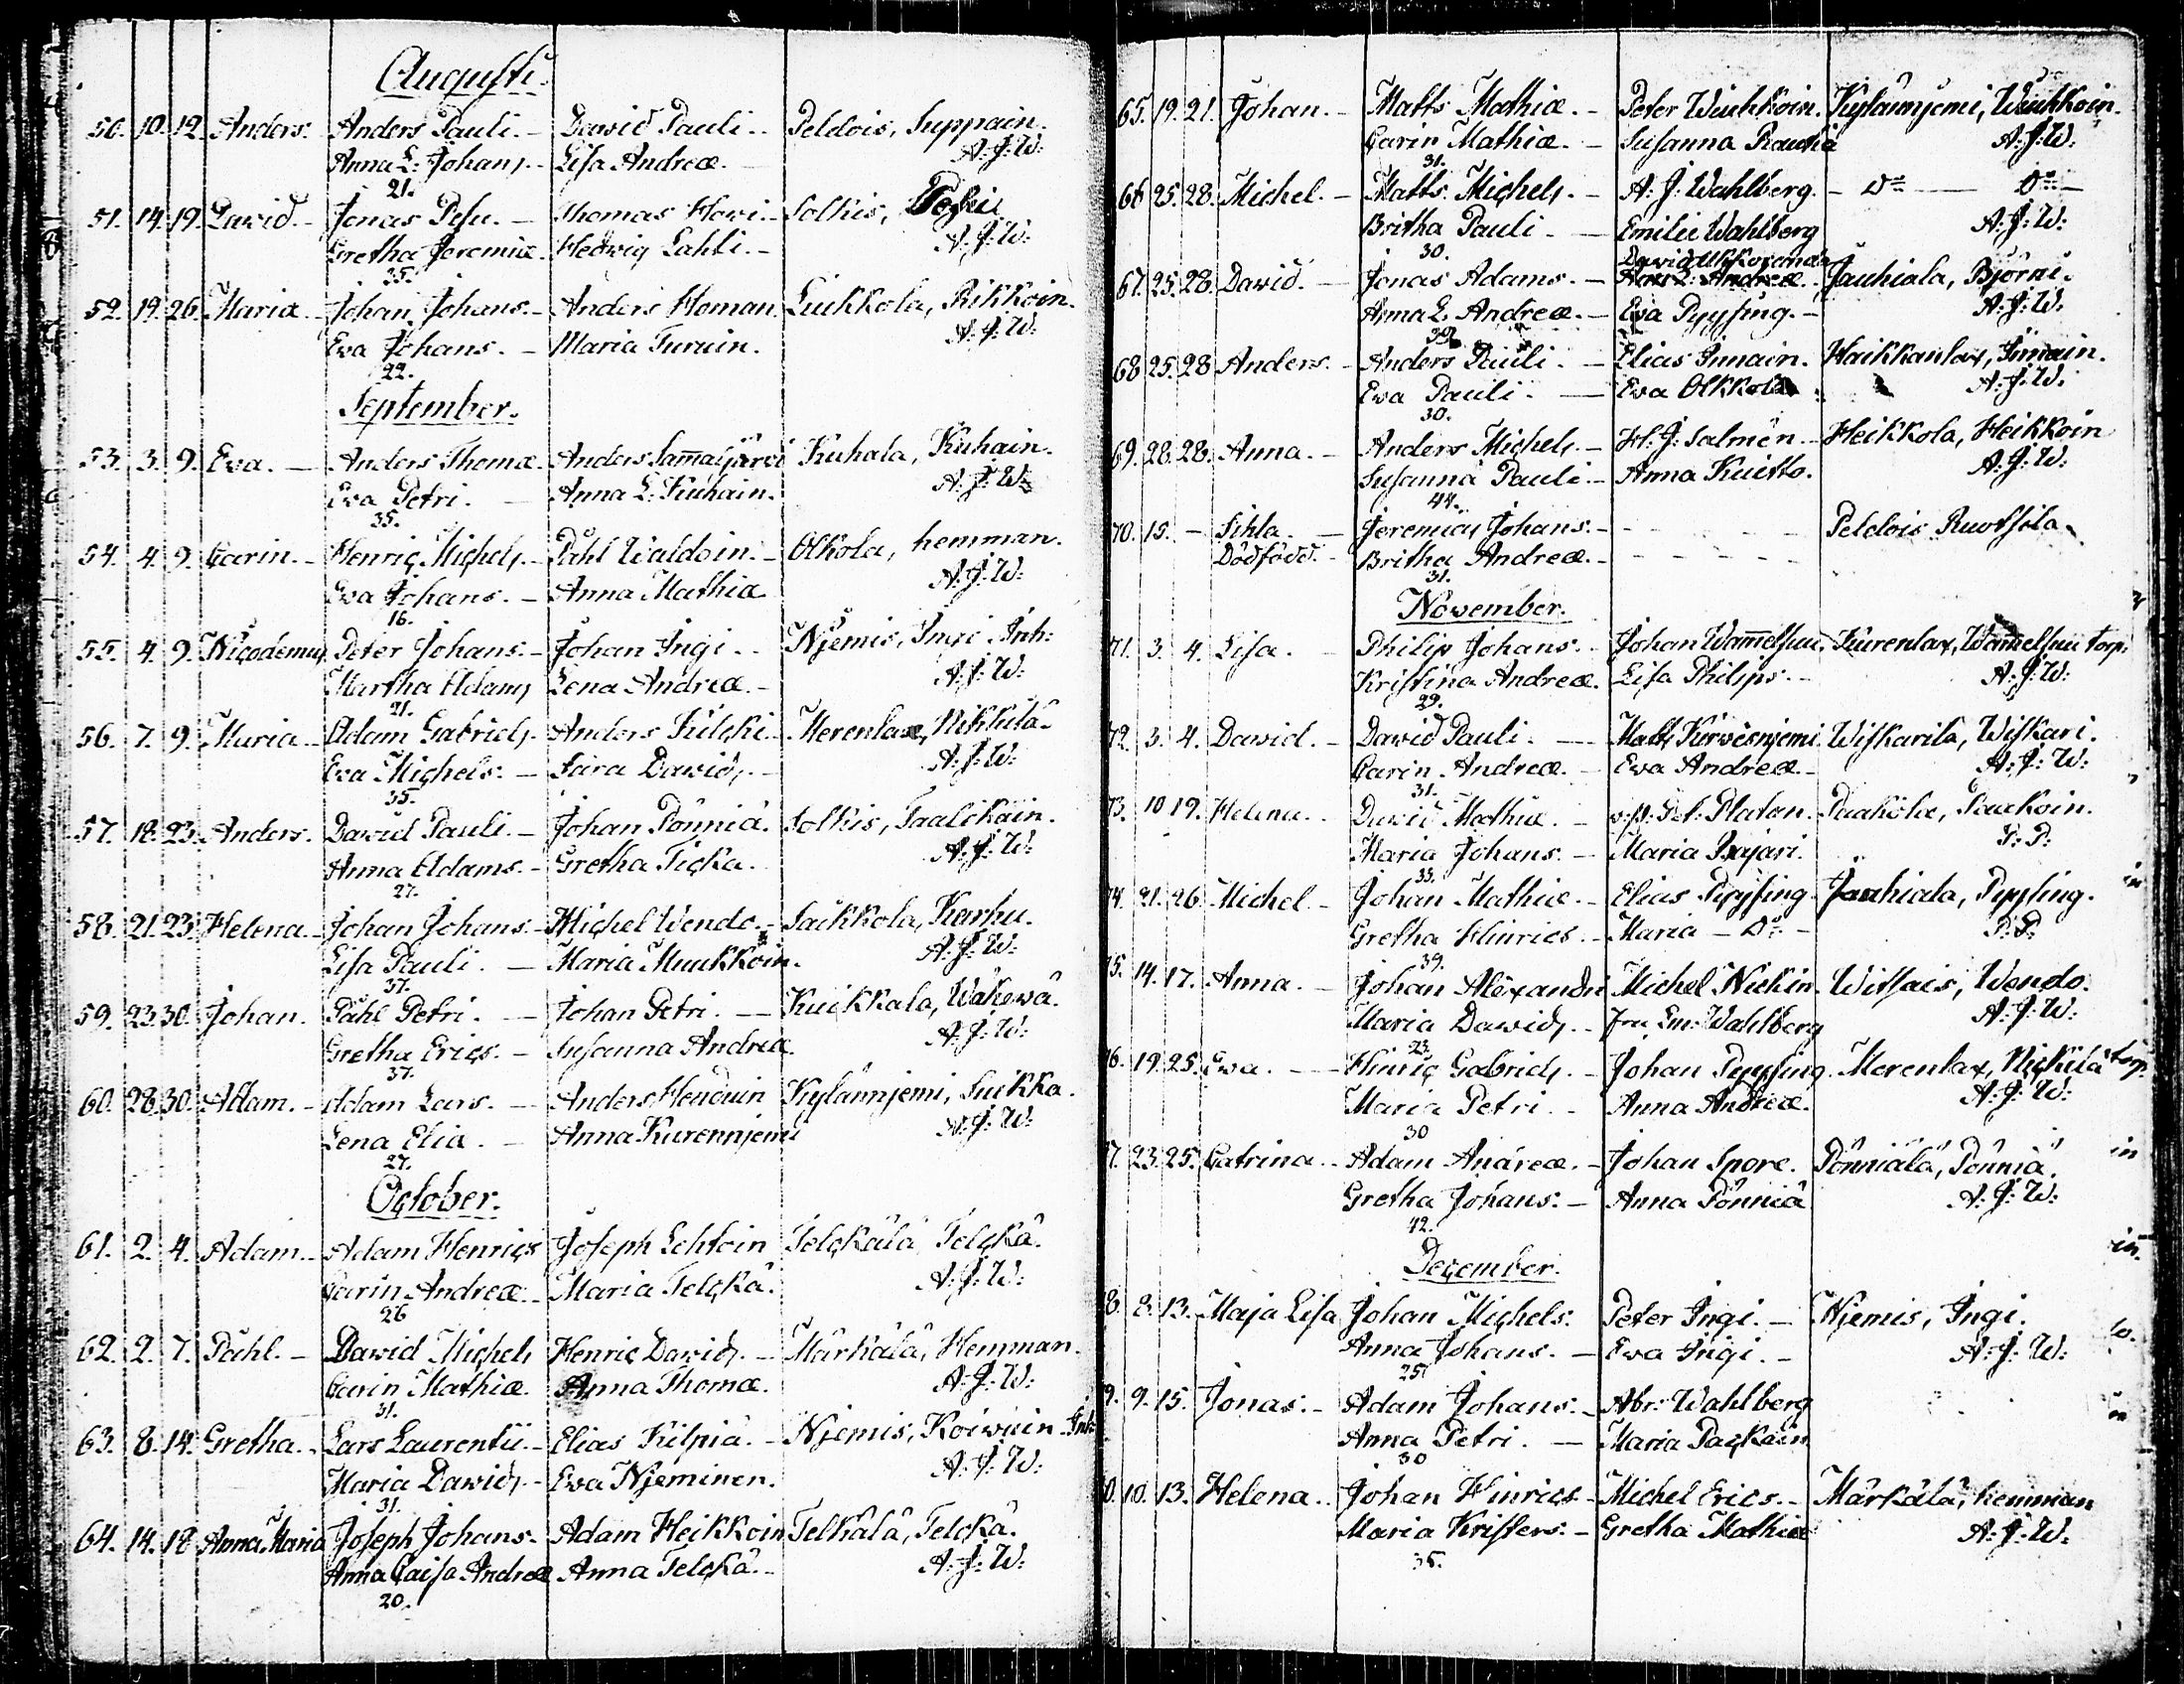 Augusti.
50. 10. 12. Anders. Anders Pauli. - David Pauli. - Peldois, Suppain.
Anna L: Johans. - Lisa Andreæ. - A:J:W:
21.
51. 14. 19. David. - Jonas Pesu. - Thomas Howi. - Solkis, Peshi
Gretha Jeremiæ. Hedvig Lahti. - A:J:W:
35.
52. 19. 26. Maria - Johan Johans. - Anders Homan. Luikkola, Rikkoin.
Eva Johans. - Maria Turuin. A:J:W:
22.
September.
53. 3. 9. Eva. - Anders Thomæ. Anders Sam̄aljärvi Kuhala, Kuhain.
Eva Petri. - Anna L: Kuhain. A:J:W:
35.
54. 4. 9. Carin. - Henric Michels. - Påhl Waldoin. - Olkola, hemman.
Eva Johans. - Anna Mathiæ A:J:W:
16.
55. 4. 9. Nicodemus Peter Johans. - Johan Ingi. - Njemis, Ingi Inh:
Martha Adams Lena Andreæ. - A:J:W:
21.
56. 7. 9. Maria - Adam Gabriels. - Anders Sulcki - Merenlax, Nikkilä
Eva Michels. - Sara Davids. - A:J:W:
35.
57. 18. 23. Anders. David Pauli. - Johan Pönniä. Solkis, Taalikain.
Anna Adams. - Gretha Ticka. A:J:W:
27.
58. 21. 23. Helena - Johan Johans. - Michel Wendo. - Säckkola, Karhu.
Lisa Pauli. - Maria Muukkoin. A:J:W:
37.
59. 23. 30. Johan. Påhl Petri. - Johan Petri. - Kuikkala, Wäkewä.
Gretha Erics. - Susanna Andreæ. A:J:W:
37.
60. 28. 30. Adam. - Adam Lars. - Anders Henduin Kylännjemi, Suikka.
Lena Elia. - Anna Kurennjemi A:J:W:
27.
October.
61. 2. 4. Adam. - Adam Henrics Joseph Lehtoin Telckälä, Telckä.
Carin Andreæ. - Maria Telckä. A:J:W:
26
62. 2. 7. Påhl. - David Michels Henric Davids. - Märkälä, Hemman.
Carin Mathiæ. Anna Thomæ. A:J:W:
31.
63. 8. 14. Gretha. - Lars Laurentii. - Elias Kilpiä. - Njemis, Koiwuin Inh
Maria Davids. - Eva Njeminen. A:J:W:
31.
64. 14. 18 Anna Maria Joseph Johans. Adam Heikkoin Telkälä, Telckä.
Anna Caisa Andreæ Anna Telckä. - A:J:W:
20.
65. 19. 21. Johan. - Matts Mathiæ. - Peter Wiukkoin. Kylännjemi, Wiukkoin.
Carin Mathiæ. - Susanna Rautia A:J:W:
31.
66 25. 28. Michel. - Matts Michels. - A. J. Wahlberg. - Do - Do -
Britha Pauli - Emilie Wahlberg A:J:W:
30.
David Ukkoinen
67. 25. 28. David. - Jonas Adams. - Anna L: Andreæ. Jauhiala, Björni.
Anna L. Andreæ. - Eva Pyysing. - A:J:W:
32.
68 25. 28 Anders. - Anders Pauli. - Elias Innain. Haikkanlax, Innain.
Eva Pauli. - Eva Olkkola A:J:W:
30.
69. 28. 28. Anna. - Anders Michels. - H. J. Salmén. - Heikkola, Heikkoin
Susanna Pauli. - Anna Kuitto. A:J:W:
44.
70. 15. - Sihla. - Jeremias Johans. - Peldois Ruotsila
Dödfödd. - Britha Andreæ. -
31.
November.
71. 3. 4. Lisa. - Philip Johans. - Johan Wam̄elsuu. Kurenlax, Wam̄elsuu torp.
Kristina Andreæ. Lisa Philips. - A:J:W:
29.
72. 3. 4. David. - David Pauli. - Matts Kirvesnjemi Wiskarila, Wiskari.
Carin Andreæ. - Eva Andreæ. - A:J:W:
31.
73. 10 19. Helena. - David Mathiæ. - v.p. Pet. Platan. Paakola, Paukoin.
Maria Johans. - Maria Pajari. P:P:
33.
74. 21. 26. Michel - Johan Mathiæ. - Elias Pyysing Jauhiala, Pyysing.
Gretha Hinrics. - Maria - Do - P:P:
39.
75. 14. 17. Anna. - Johan Alexandri Michel Nickin. Witsais, Wendo.
Maria Davids. - Fru Em: Wahlberg A:J:W:
23.
76. 19. 25. Eva. - Hinric Gabriels. - Johan Pyysing. Merenlax, Nickilä torp.
Maria Petri. - Anna Andreæ. A:J:W:
30
77. 23. 25. Catrina. - Adam Andreæ. - Johan Spore. Pönniälä, Pönniä.
Gretha Johans: - Anna Pönniä A:J:W:
42.
December.
8. 8. 13. Maja Lisa Johan Michels: Peter Ingi. - Njemis, Ingi.
Anna Johans. - Eva Ingi. - A:J:W:
25.
9. 9. 15. Jonas. - Adam Johans. - Abr: Wahlberg
Anna Petri. - Maria Packain
30
0. 10. 13. Helena. - Johan Hinrics - Michel Erics. - Märkälä, hemman
Maria Kristers. - Gretha Mathiæ A:J:W:
35.